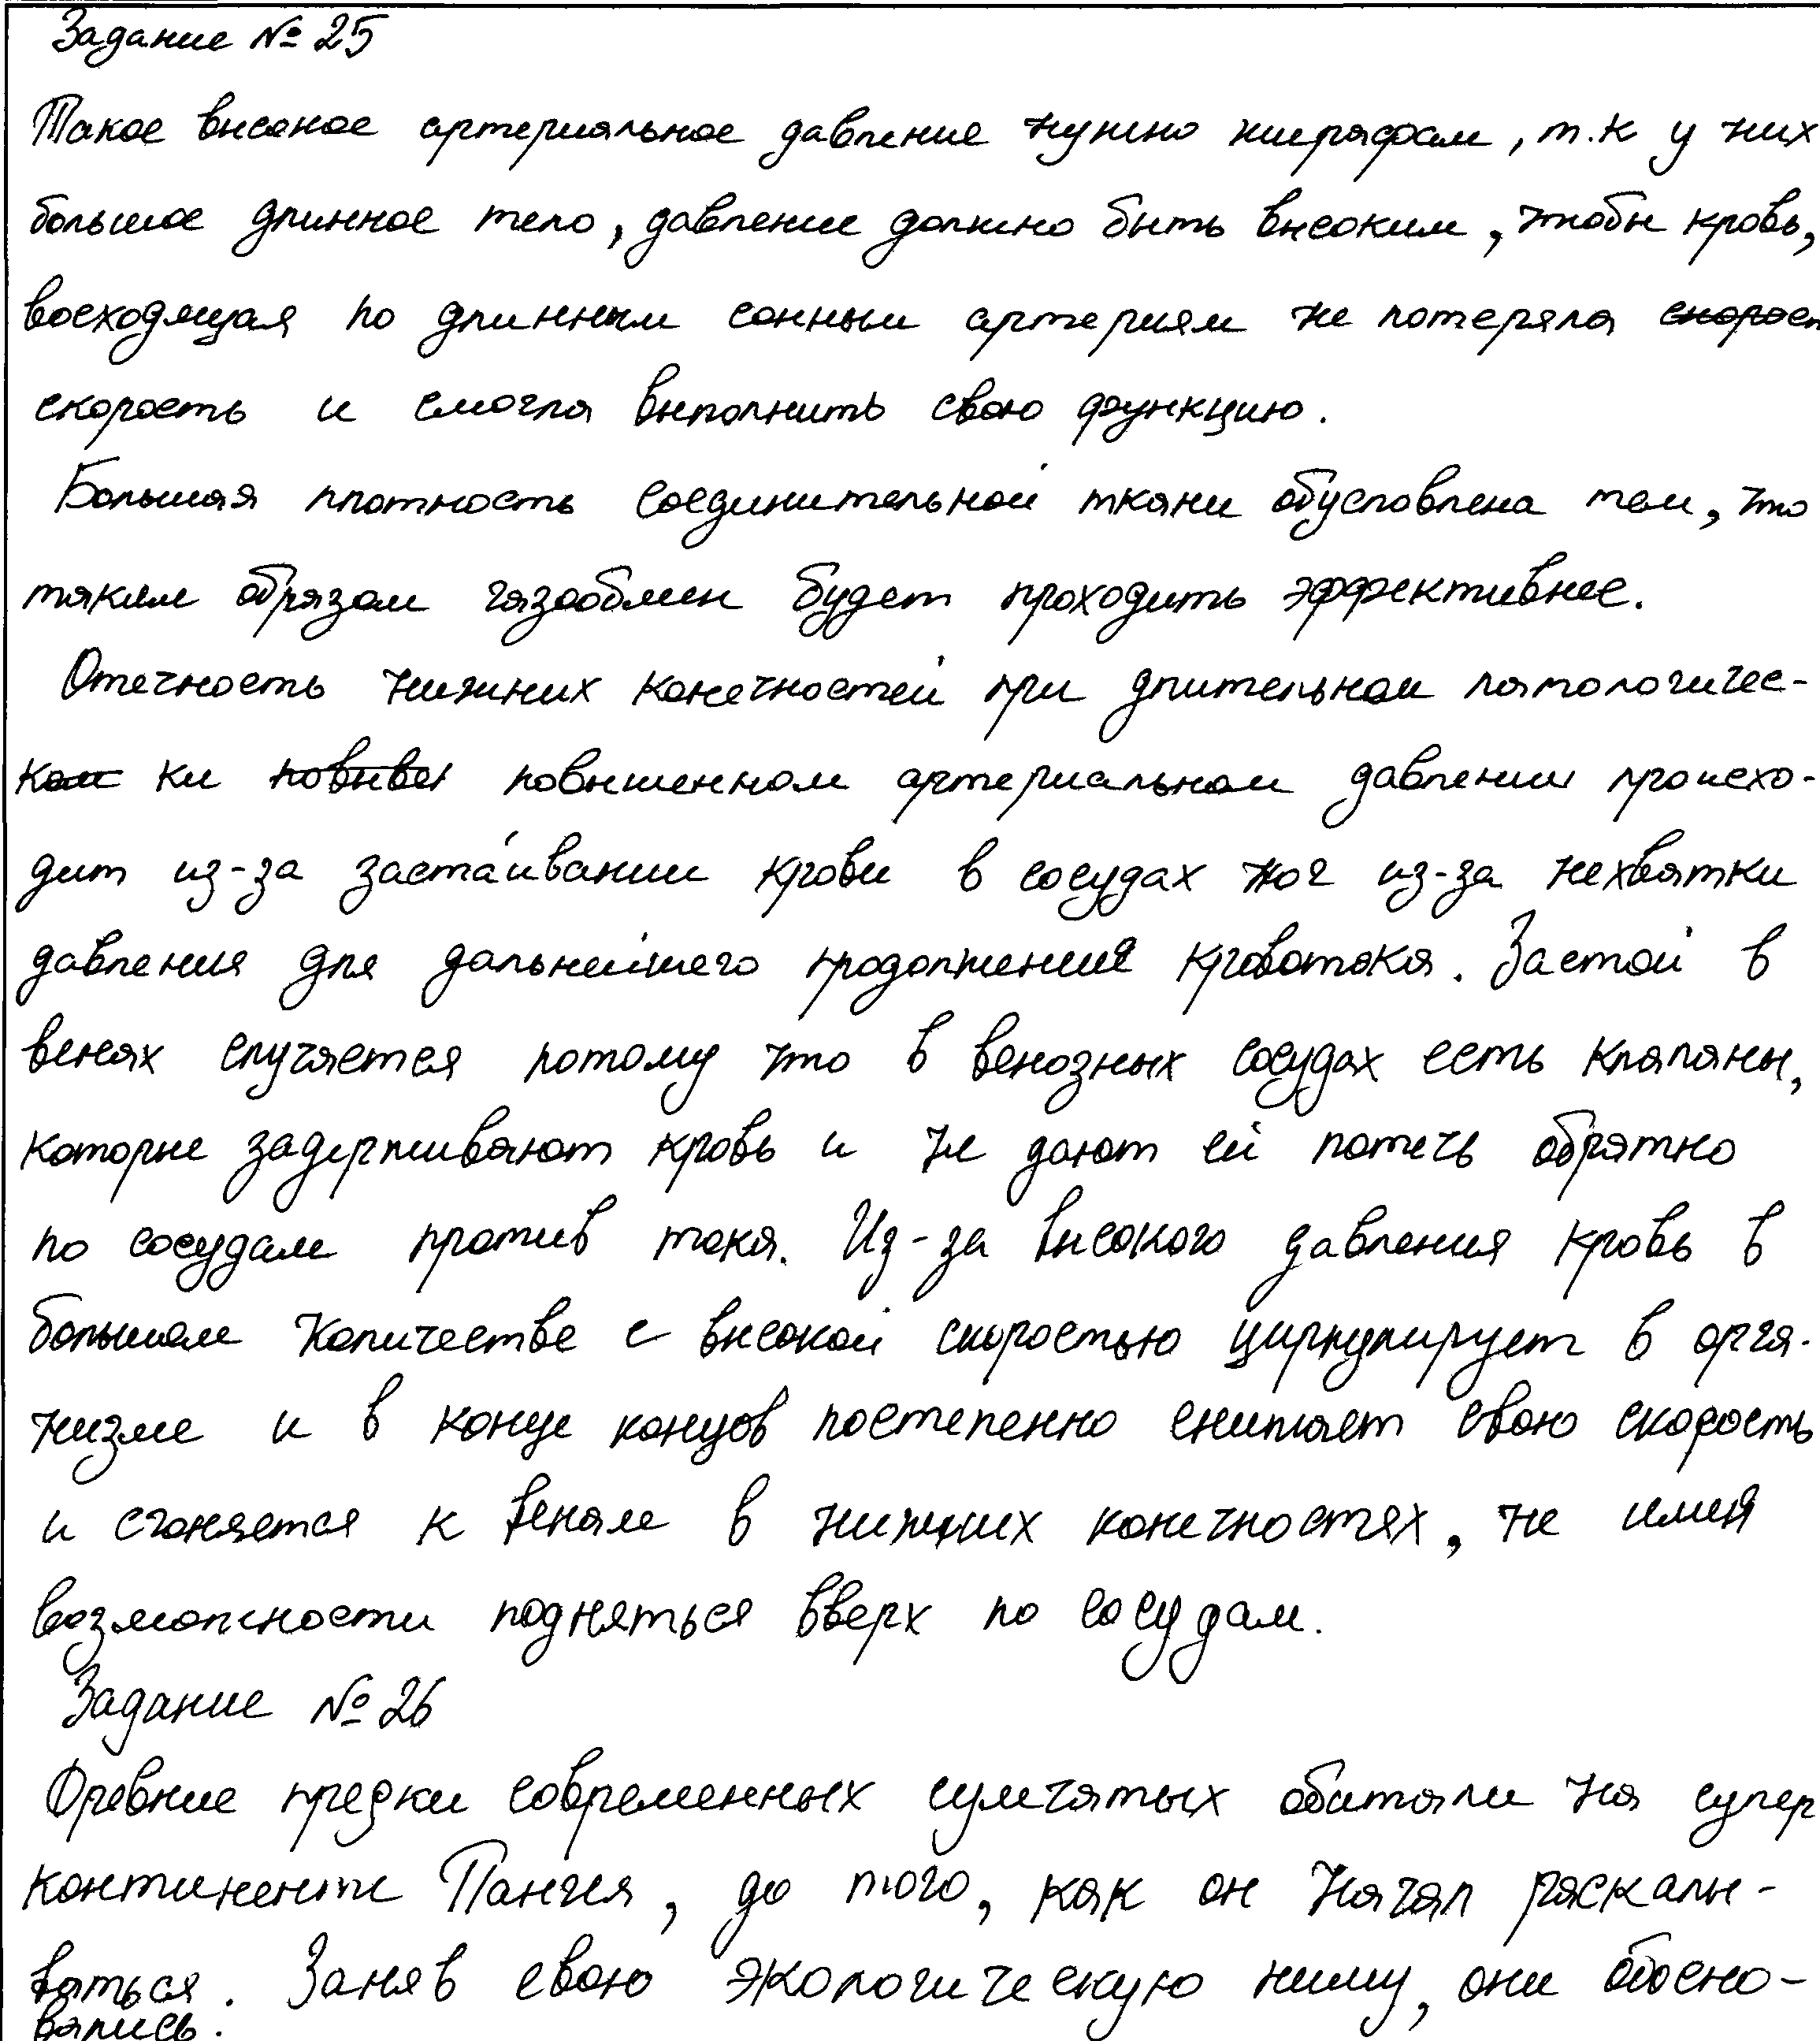 Задание № 25
Такое высокое артериальное давление нужно жирафам, т.к у них
большое длинное тело, давление должно быть высоким, чтобы кровь,
восходящая по длинным сонным артериям не потеряла скорост
скорость и смогла выполнить свою функцию.
Большая плотность соединительной ткани обусловлена тем, что
таким образом газообмен будет проходить эффективнее.
Отечность нижних конечностей при длительном патологичес-
ком ки повыве повышенном артериальном давлении происхо-
дит из-за застаивании крови в сосудах ног из-за нехватки
давления для дальнейшего продолжения кровотока. Застой в
венах случается потому что в венозных сосудах есть клапаны,
которые задерживают кровь и не дают ей потечь обратно
по сосудам против тока. Из-за высокого давления кровь в
большом количестве с высокой скоростью циркулирует в орга-
низме и в конце концов постепенно снижает свою скорость
и сгоняется к венам в нижних конечностях, не имея
возможности подняться вверх по сосудам.
Задание № 26
Древние предки современных сумчатых обитали на супер
континенте Пангея, до того, как он начал раскалы-
ваться. Заняв свою экологическую нишу, они обосно-
вались.